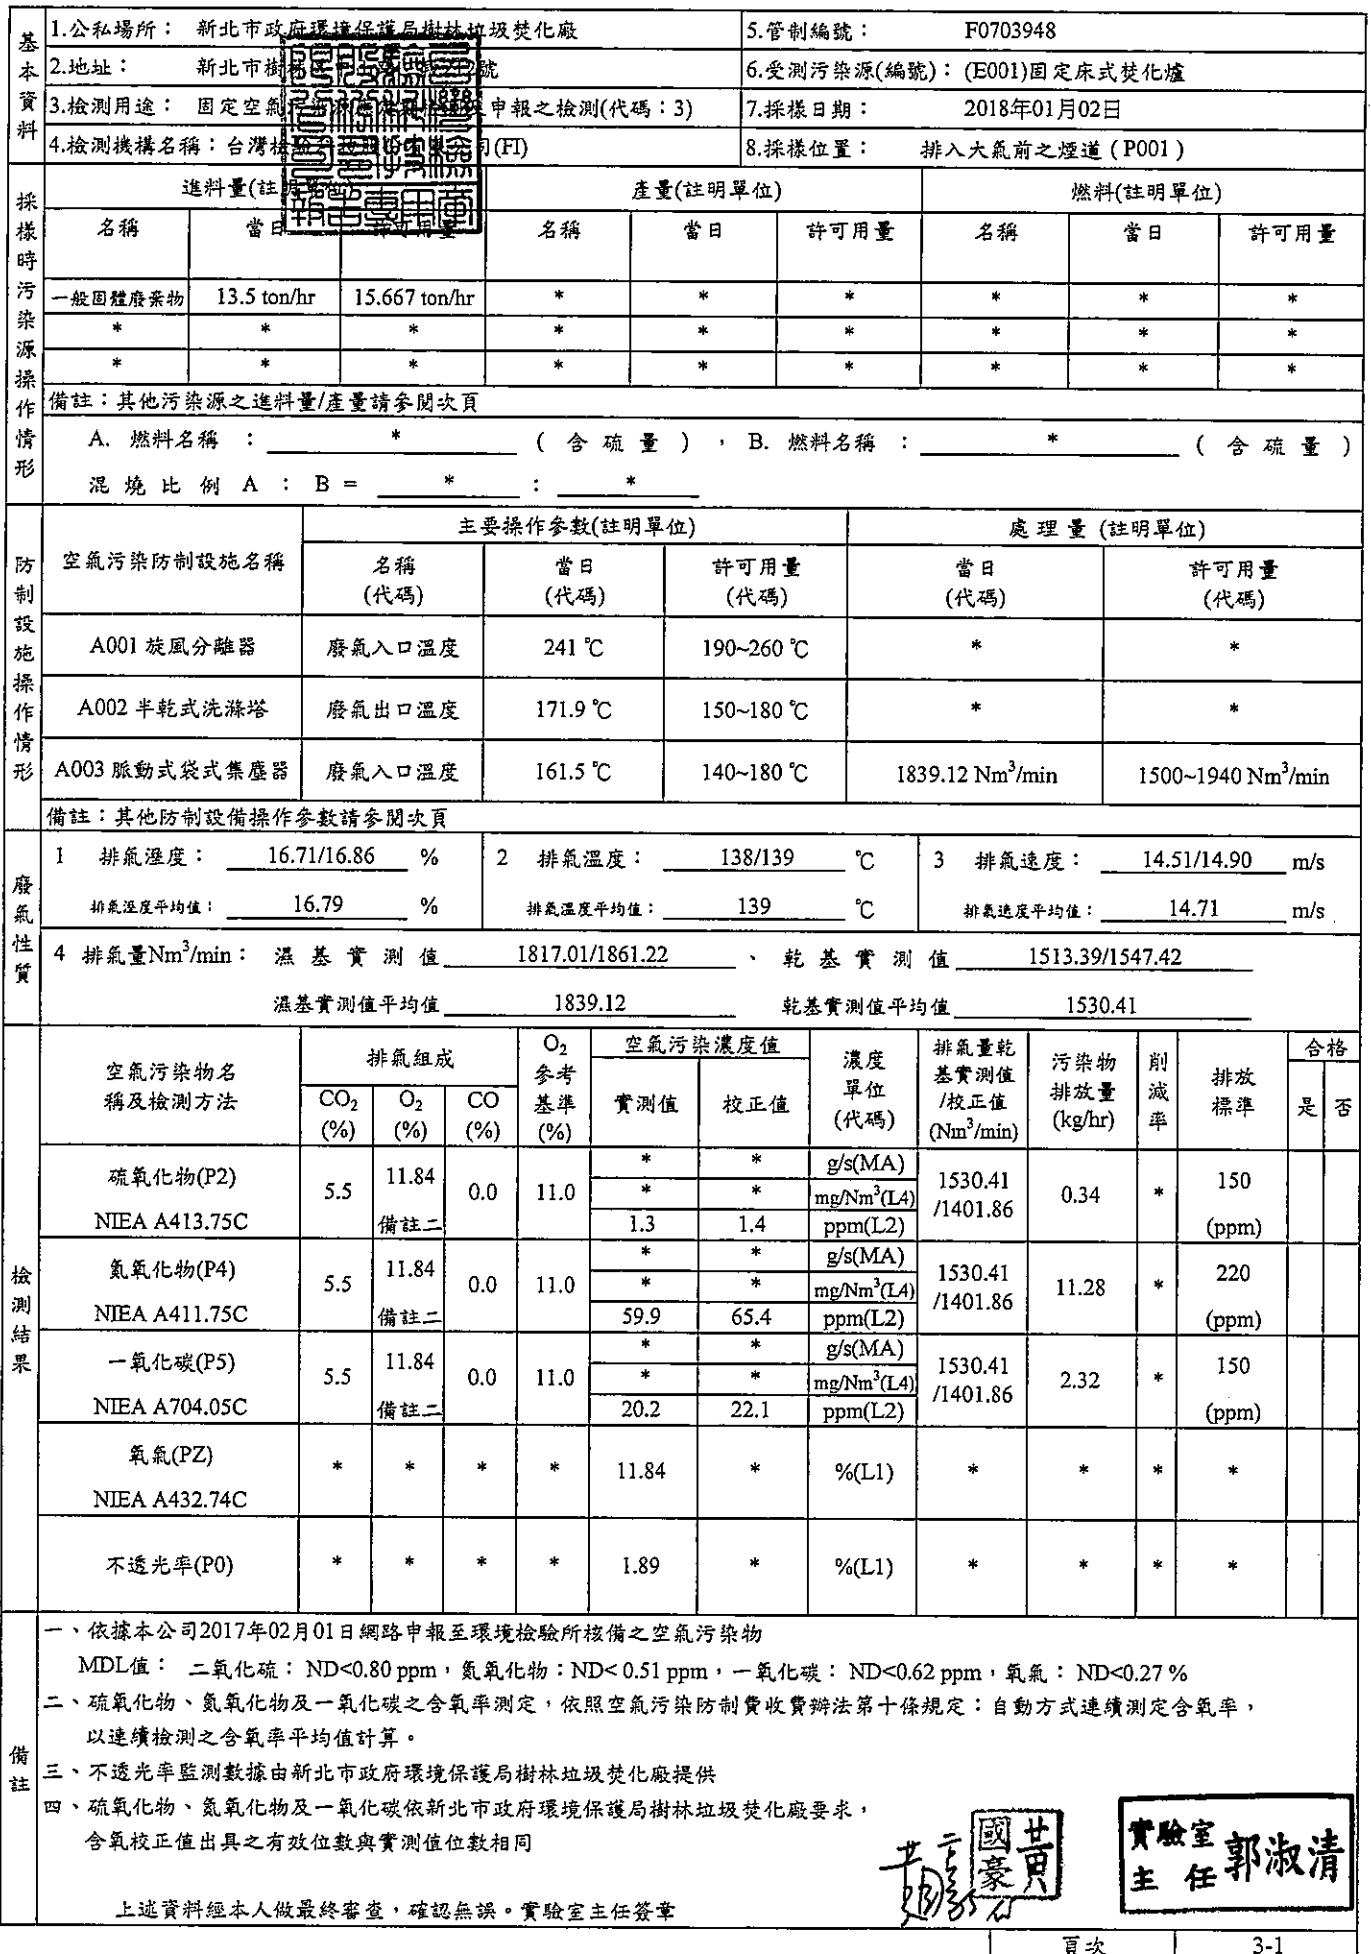 基本資料
1.公私場所： 新北市政府環境保護局樹林垃圾焚化廠
5.管制編號： F0703948
2.地址： 新北市樹
6.受測污染源(編號)：(E001)固定床式焚化爐
3.檢測用途： 固定空氣 申報之檢測(代碼：3)
7.採樣日期： 2018年01月02日
4.檢測機構名稱：台灣檢驗科技股份有限公司(FI)
8.採樣位置： 排入大氣前之煙道 (P001)
採樣時污染源操作情形
進料量(註明單位) 產量(註明單位) 燃料(註明單位)
名稱 當日 許可用量 名稱 當日 許可用量 名稱 當日 許可用量
一般固體廢棄物 13.5 ton/hr 15.667 ton/hr * * * * * *
* * * * * * * * *
* * * * * * * * *
備註：其他污染源之進料量/產量請參閱次頁
A. 燃料名稱 ： * ( 含 硫 量 ) ， B. 燃料名稱 ： * ( 含 硫 量 )
混 燒 比 例 A : B = * : *
防制設施操作情形
空氣污染防制設施名稱 主要操作參數(註明單位) 處 理 量 (註明單位)
名稱(代碼) 當日(代碼) 許可用量(代碼) 當日(代碼) 許可用量(代碼)
A001 旋風分離器 廢氣入口溫度 241 ℃ 190~260 ℃ * *
A002 半乾式洗滌塔 廢氣出口溫度 171.9 ℃ 150~180 ℃ * *
A003 脈動式袋式集塵器 廢氣入口溫度 161.5 ℃ 140~180 ℃ 1839.12 Nm³/min 1500~1940 Nm³/min
備註：其他防制設備操作參數請參閱次頁
廢氣性質
1 排氣溼度： 16.71/16.86 % 2 排氣溫度： 138/139 ℃ 3 排氣速度： 14.51/14.90 m/s
排氣溼度平均值： 16.79 % 排氣溫度平均值： 139 ℃ 排氣速度平均值： 14.71 m/s
4 排氣量Nm³/min： 濕 基 實 測 值 1817.01/1861.22 、 乾 基 實 測 值 1513.39/1547.42
濕基實測值平均值 1839.12 乾基實測值平均值 1530.41
檢測結果
空氣污染物名稱及檢測方法 排氣組成 O₂參考基準(%) 空氣污染濃度值 濃度單位(代碼) 排氣量乾基實測值/校正值(Nm³/min) 污染物排放量(kg/hr) 削減率 排放標準 合格
CO₂(%) O₂(%) CO(%) 實測值 校正值 是 否
硫氧化物(P2) NIEA A413.75C 5.5 11.84 備註二 0.0 11.0 * * g/s(MA) 1530.41/1401.86 0.34 * 150 (ppm)
* * mg/Nm³(L4)
1.3 1.4 ppm(L2)
氮氧化物(P4) NIEA A411.75C 5.5 11.84 備註二 0.0 11.0 * * g/s(MA) 1530.41/1401.86 11.28 * 220 (ppm)
* * mg/Nm³(L4)
59.9 65.4 ppm(L2)
一氧化碳(P5) NIEA A704.05C 5.5 11.84 備註二 0.0 11.0 * * g/s(MA) 1530.41/1401.86 2.32 * 150 (ppm)
* * mg/Nm³(L4)
20.2 22.1 ppm(L2)
氧氣(PZ) NIEA A432.74C * * * * 11.84 * %(L1) * * * *
不透光率(P0) * * * * 1.89 * %(L1) * * * *
備註
一、依據本公司2017年02月01日網路申報至環境檢驗所核備之空氣污染物
MDL值： 二氧化硫： ND<0.80 ppm，氮氧化物：ND< 0.51 ppm，一氧化碳： ND<0.62 ppm，氧氣： ND<0.27 %
二、硫氧化物、氮氧化物及一氧化碳之含氧率測定，依照空氣污染防制費收費辦法第十條規定：自動方式連續測定含氧率，
以連續檢測之含氧率平均值計算。
三、不透光率監測數據由新北市政府環境保護局樹林垃圾焚化廠提供
四、硫氧化物、氮氧化物及一氧化碳依新北市政府環境保護局樹林垃圾焚化廠要求，
含氧校正值出具之有效位數與實測值位數相同
黃國豪
實驗室主任 郭淑清
上述資料經本人做最終審查，確認無誤。實驗室主任簽章
頁次 3-1